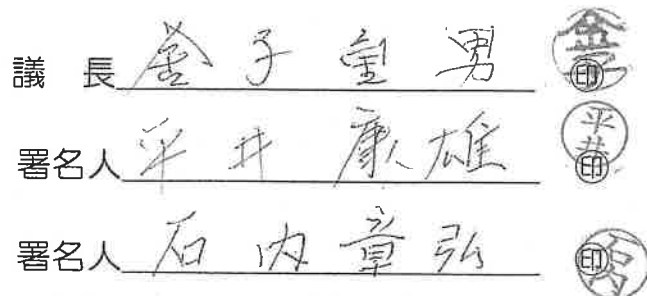 議 長 金子 宝男 金子 印
署名人 平井 康雄 平井 印
署名人 石内 章弘 印